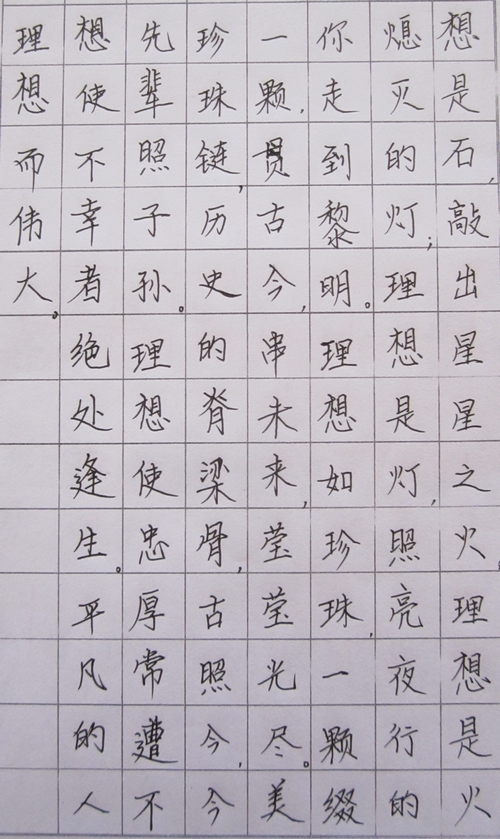 想是石,敲出星星之火,理想是火
熄灭的灯;理想是灯,照亮夜行的
你走到黎明。理想如珍珠,一颗缀
一颗,贯古今,串未来,莹莹光尽。美
珍珠链,历史的脊梁骨,古照今,今
先辈照子孙。理想使忠厚常遭不
想使不幸者绝处逢生。平凡的人
理想而伟大。